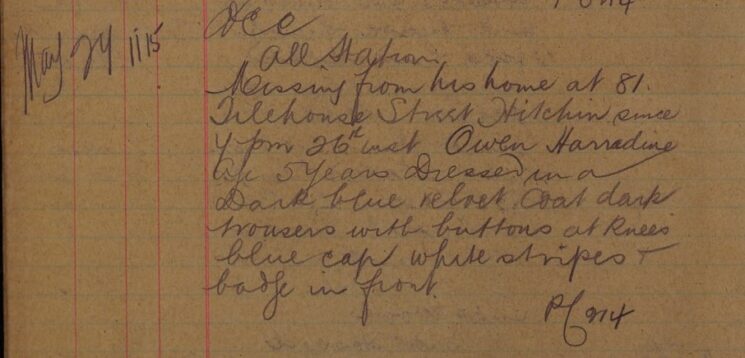 DCC
May 27 11 15
All Station
Missing from his home at 81.
Tilehouse Street Hitchin since
4 pm 26th inst Owen Harradine
age 5 years Dressed in a
Dark blue velvet Coat dark
trousers with buttons at knees
blue cap white stripes +
badge in front
PC 214